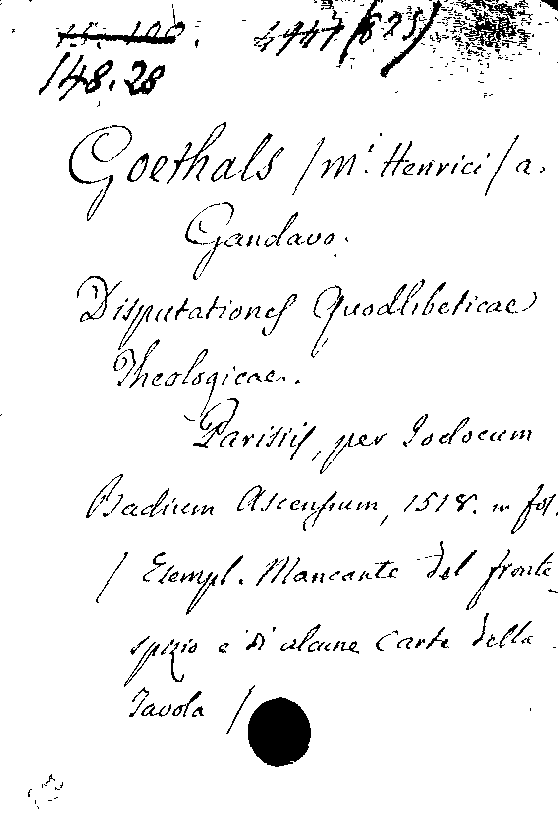 15. 100. 4947 (825)
148.28
Goethals / M.i Henrici / a.
Gandavo.
Disputationes Quodlibeticae
Theologicae.
Parisiis, per Iodocum
Badium Ascensium, 1518. in fol.
/ Esempl. Mancante del fronte
spizio e di alcune carte della
Tavola /